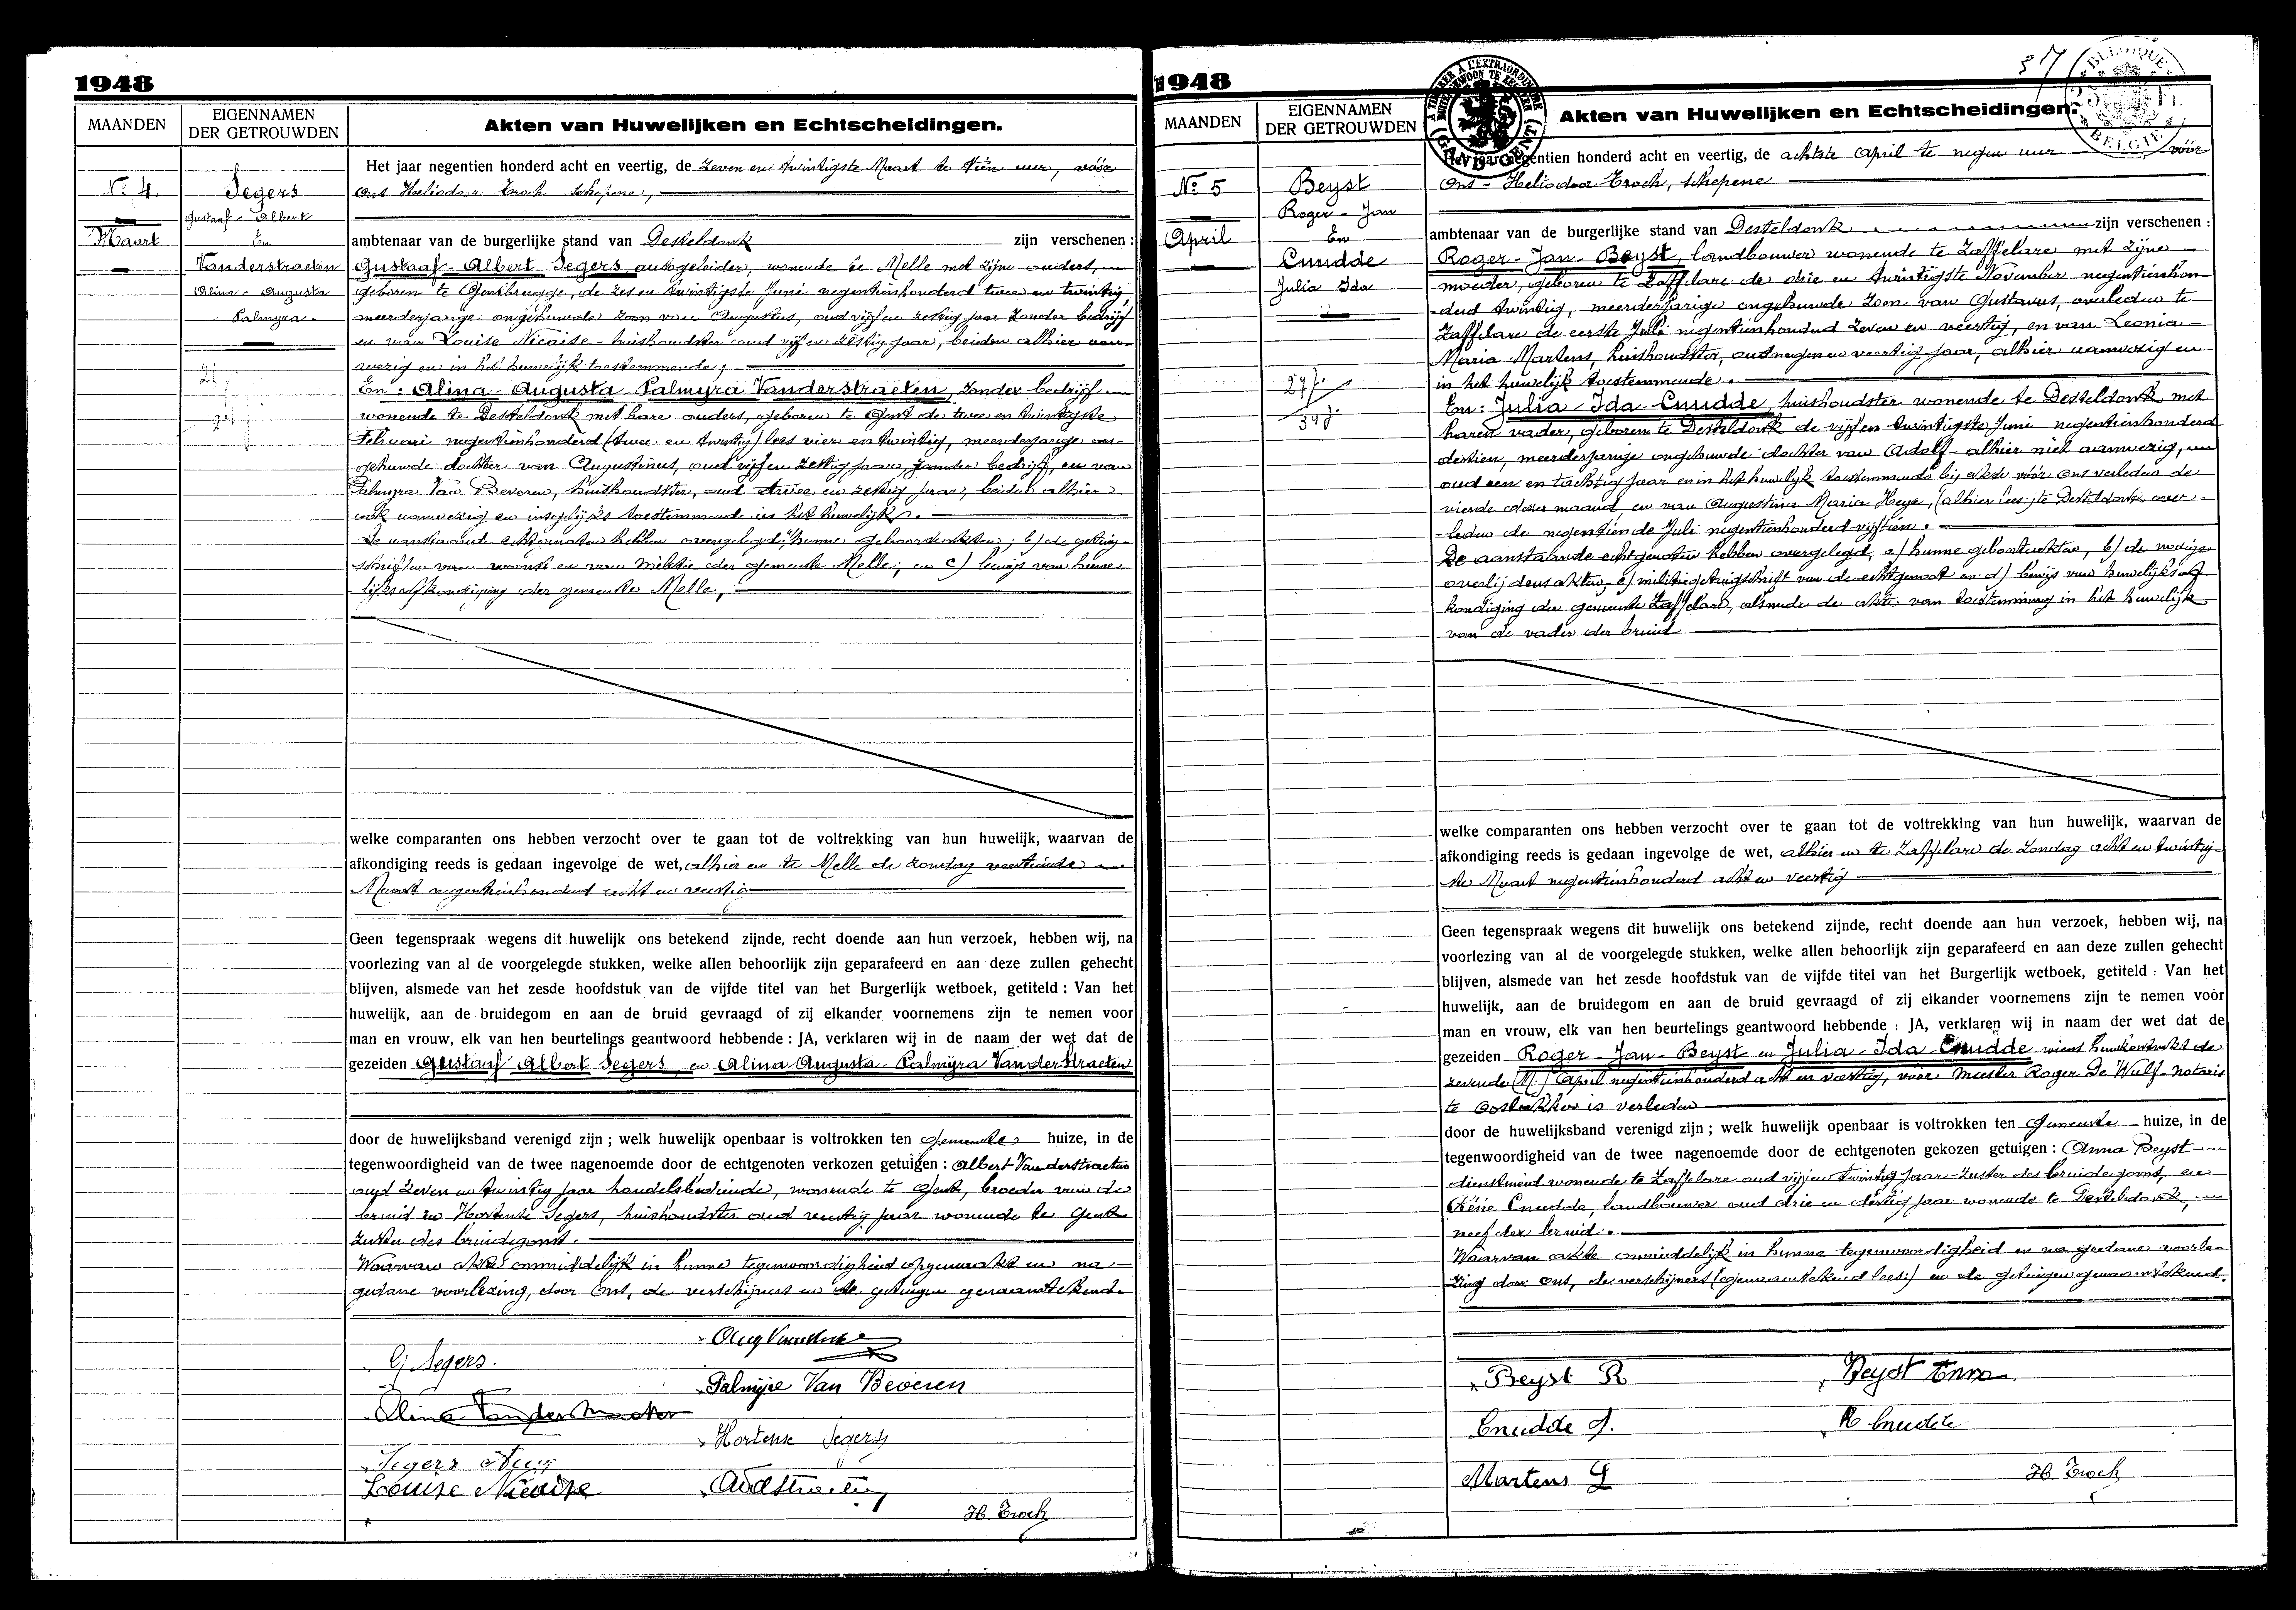 1948
MAANDEN
EIGENNAMEN
DER GETROUWDEN
Akten van Huwelijken en Echtscheidingen.
Nº 4.
Maart
Segers
Gustaaf - Albert
En
Vanderstraeten
Alina - Augusta
Palmyra.
24 j
Het jaar negentien honderd acht en veertig, de zeven en twintigste Maart te tien uur, vóór
Ons Heliodoor Troch schepene,
ambtenaar van de burgerlijke stand van Desteldonk zijn verschenen :
Gustaaf - Albert Segers, autogeleider, wonende te Melle met zijne ouders,
geboren te Gentbrugge, de zes en twintigste Juni negentienhonderd twee en twintig,
meerderjarige ongehuwde zoon van Augustus, oud vijf en zestig jaar zonder bedrijf
en van Louise Nicaise - huishoudster oud vijf en zestig jaar, beiden alhier aan-
wezig en in het huwelijk toestemmende;
En : Alina - Augusta Palmyra Vanderstraeten, zonder bedrijf
wonende te Desteldonk met hare ouders, geboren te Gent de twee en twintigste
Februari negentienhonderd (twee en twintig) lees vier en twintig, meerderjarige on-
gehuwde dochter van Augustinus, oud vijf en zestig jaar, zonder bedrijf, en van
Palmyra Van Beveren, huishoudster, oud twee en zestig jaar, beiden alhier
ook aanwezig en insgelijks toestemmende in het huwelijk.
De aanstaande echtgenoten hebben overgelegd; hunne geboorteakten; b) de getuig-
schriften van woonst en van militie der gemeente Melle; en c) bewijs van huwe-
lijksafkondiging der gemeente Melle,
welke comparanten ons hebben verzocht over te gaan tot de voltrekking van hun huwelijk, waarvan de
afkondiging reeds is gedaan ingevolge de wet, alhier en te Melle de zondag veertiende
Maart negentienhonderd acht en veertig
Geen tegenspraak wegens dit huwelijk ons betekend zijnde, recht doende aan hun verzoek, hebben wij, na
voorlezing van al de voorgelegde stukken, welke allen behoorlijk zijn geparafeerd en aan deze zullen gehecht
blijven, alsmede van het zesde hoofdstuk van de vijfde titel van het Burgerlijk wetboek, getiteld : Van het
huwelijk, aan de bruidegom en aan de bruid gevraagd of zij elkander voornemens zijn te nemen voor
man en vrouw, elk van hen beurtelings geantwoord hebbende : JA, verklaren wij in de naam der wet dat de
gezeiden Gustaaf Albert Segers en Alina Augusta - Palmyra Vanderstraeten
door de huwelijksband verenigd zijn ; welk huwelijk openbaar is voltrokken ten gemeente huize, in de
tegenwoordigheid van de twee nagenoemde door de echtgenoten verkozen getuigen : Albert Vanderstraeten
oud zeven en twintig jaar handelsbediende, wonende te Gent, broeder van de
bruid en Hortense Segers, huishoudster oud veertig jaar wonende te Gent
zuster des bruidegoms.
Waarvan akte onmiddelijk in hunne tegenwoordigheid opgemaakt en na
gedane voorlezing, door Ons, de verschijners en de getuigen genaamtekend.
G. Segers.
Palmyre Van Beveren
Alina Vanderstraeten
Hortense Segers
Segers Aug
Louise Nicaise
H. Troch
1948
MAANDEN
EIGENNAMEN
DER GETROUWDEN
Akten van Huwelijken en Echtscheidingen.
37
A TIMBRER A L'EXTRAORDINAIRE
GAND GENT
BELGIQUE
BELGIE
Nº 5
April
Beyst
Roger - Jan
En
Cnudde
Julia Ida
27 j.
34 j.
Het jaar negentien honderd acht en veertig, de achtste April te negen uur vóór
Ons - Heliodoor Troch, schepene
ambtenaar van de burgerlijke stand van Desteldonk zijn verschenen :
Roger - Jan - Beyst, landbouwer wonende te Zaffelare met zijne
moeder, geboren te Zaffelare de drie en twintigste November negentienhon-
derd twintig, meerderjarige ongehuwde zoon van Gustavus, overleden te
Zaffelare de eerste Juli negentienhonderd zeven en veertig, en van Leonia
Maria Martens, huishoudster, oud negen en veertig jaar, alhier aanwezig en
in het huwelijk toestemmende.
En : Julia - Ida - Cnudde huishoudster wonende te Desteldonk met
haren vader, geboren te Desteldonk de vijf en twintigste Juni negentienhonderd
dertien, meerderjarige ongehuwde dochter van Adolf - alhier niet aanwezig,
oud een en tachtig jaar en in het huwelijk toestemmende bij akte vóór Ons verleden de
vierde dezer maand, en van Augustina Maria Heye, (alhier lees:) te Desteldonk over-
leden de negentiende Juli negentienhonderd vijftien.
De aanstaande echtgenoten hebben overgelegd, a) hunne geboorteakten, b) de nodige
overlijdensakten, c) militiegetuigschrift van de echtgenoot en d) bewijs van huwelijksaf-
kondiging der gemeente Zaffelare, alsmede de akte van toestemming in het huwelijk
van de vader der bruid
welke comparanten ons hebben verzocht over te gaan tot de voltrekking van hun huwelijk, waarvan de
afkondiging reeds is gedaan ingevolge de wet, alhier en te Zaffelare de Zondag acht en twintig-
ste Maart negentienhonderd acht en veertig
Geen tegenspraak wegens dit huwelijk ons betekend zijnde, recht doende aan hun verzoek, hebben wij, na
voorlezing van al de voorgelegde stukken, welke allen behoorlijk zijn geparafeerd en aan deze zullen gehecht
blijven, alsmede van het zesde hoofdstuk van de vijfde titel van het Burgerlijk wetboek, getiteld : Van het
huwelijk, aan de bruidegom en aan de bruid gevraagd of zij elkander voornemens zijn te nemen voor
man en vrouw, elk van hen beurtelings geantwoord hebbende : JA, verklaren wij in naam der wet dat de
gezeiden Roger - Jan - Beyst en Julia - Ida Cnudde wiens huwkontrakt de
zevende April negentienhonderd acht en veertig, vóór Meester Roger De Wulf - notaris
te Oostakker is verleden
door de huwelijksband verenigd zijn ; welk huwelijk openbaar is voltrokken ten gemeente huize, in de
tegenwoordigheid van de twee nagenoemde door de echtgenoten gekozen getuigen : Anna Beyst
dienstmeid wonende te Zaffelare oud vijf en twintig jaar - zuster des bruidegoms, en
Réné Cnudde, landbouwer oud drie en dertig jaar wonende te Desteldonk,
neef der bruid.
Waarvan akte onmiddelijk in hunne tegenwoordigheid en na gedane voorle-
zing door ons, de verschijners (genaamtekend lees:) en de getuigen genaamtekend.
Beyst R
Beyst Anna.
Cnudde J.
R Cnudde
Martens L
H. Troch